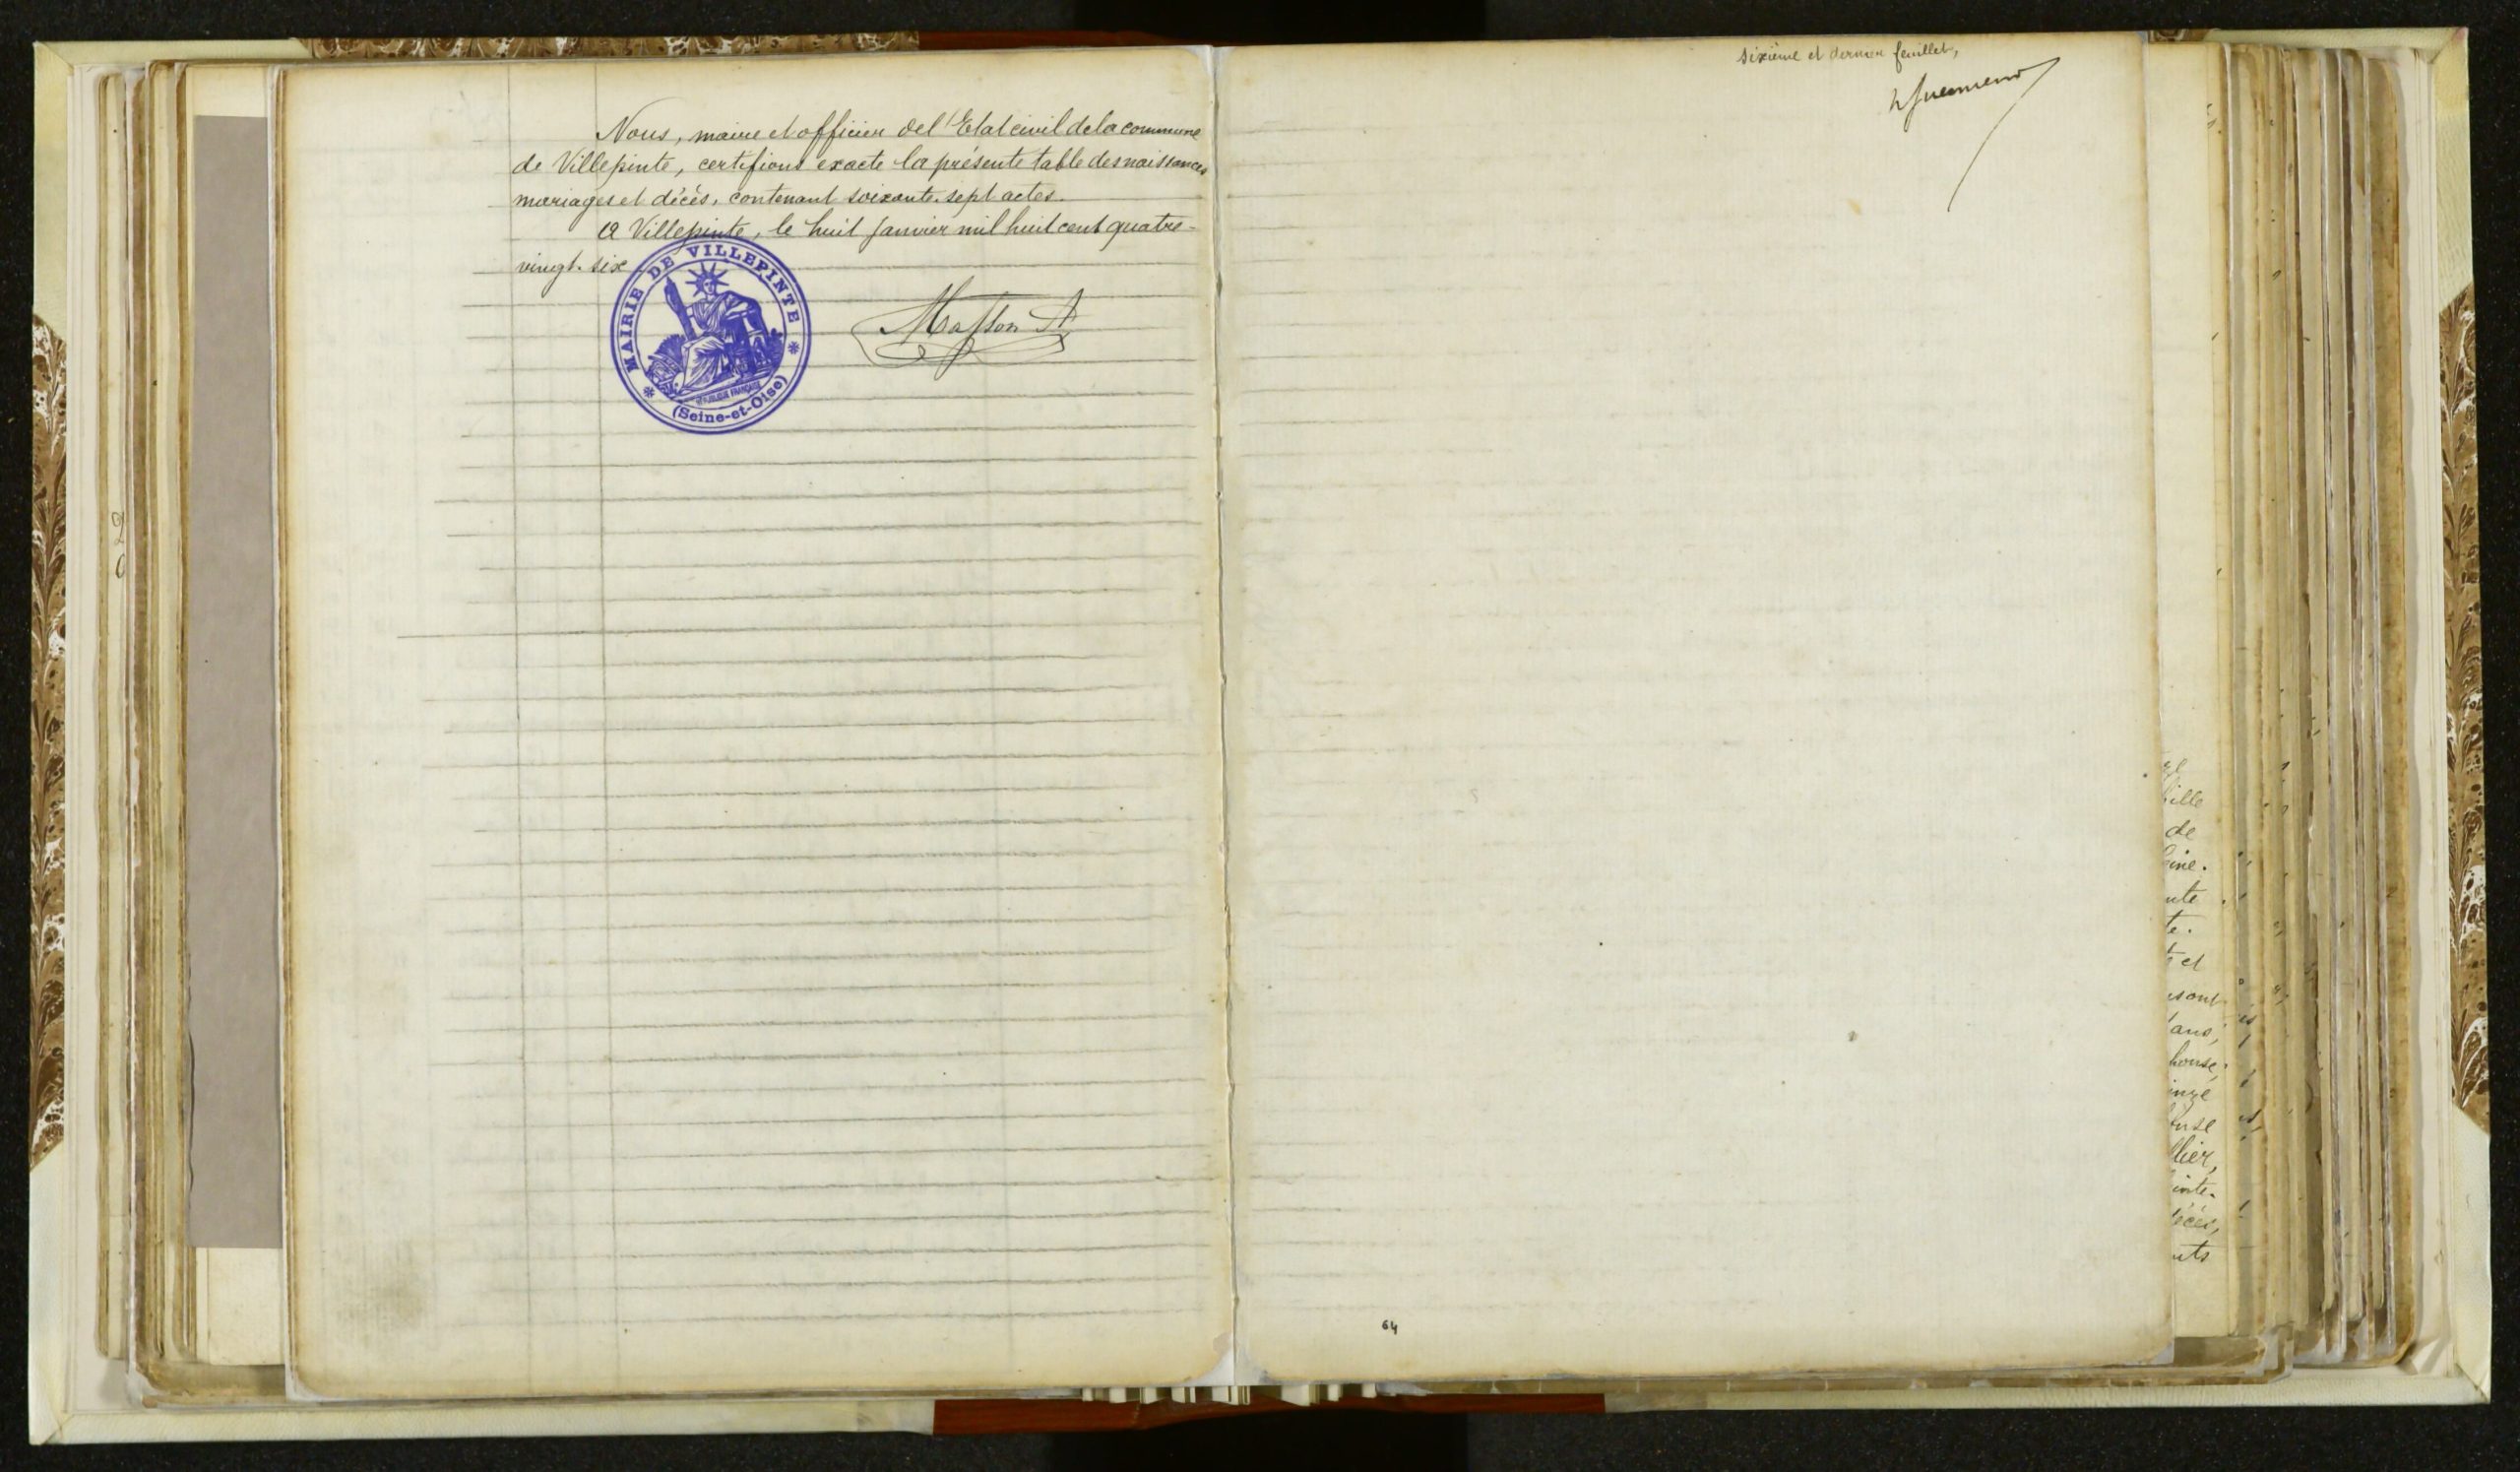 Nous, maire et officier de l'Etat civil de la commune
de Villepinte, certifions exacte la présente table des naissances
mariages et décès, contenant soixante-sept actes.
A Villepinte, le huit janvier mil huit cent quatre-
vingt-six
MAIRIE DE VILLEPINTE
RÉPUBLIQUE FRANÇAISE
(Seine-et-Oise)
Masson A
sixième et dernier feuillet,
64
ille
de
ine.
nte
te.
et
sont
ans,
inze
use
llier,
inte.
écès,
nts